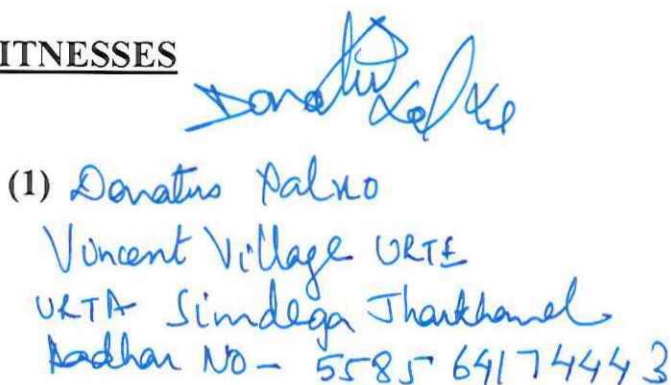 ITNESSES
Donatus
(1) Donatus
Vincent Village URTE
URTA Simdega Jharkhand
Aadhar NO - 5585 6417 4443